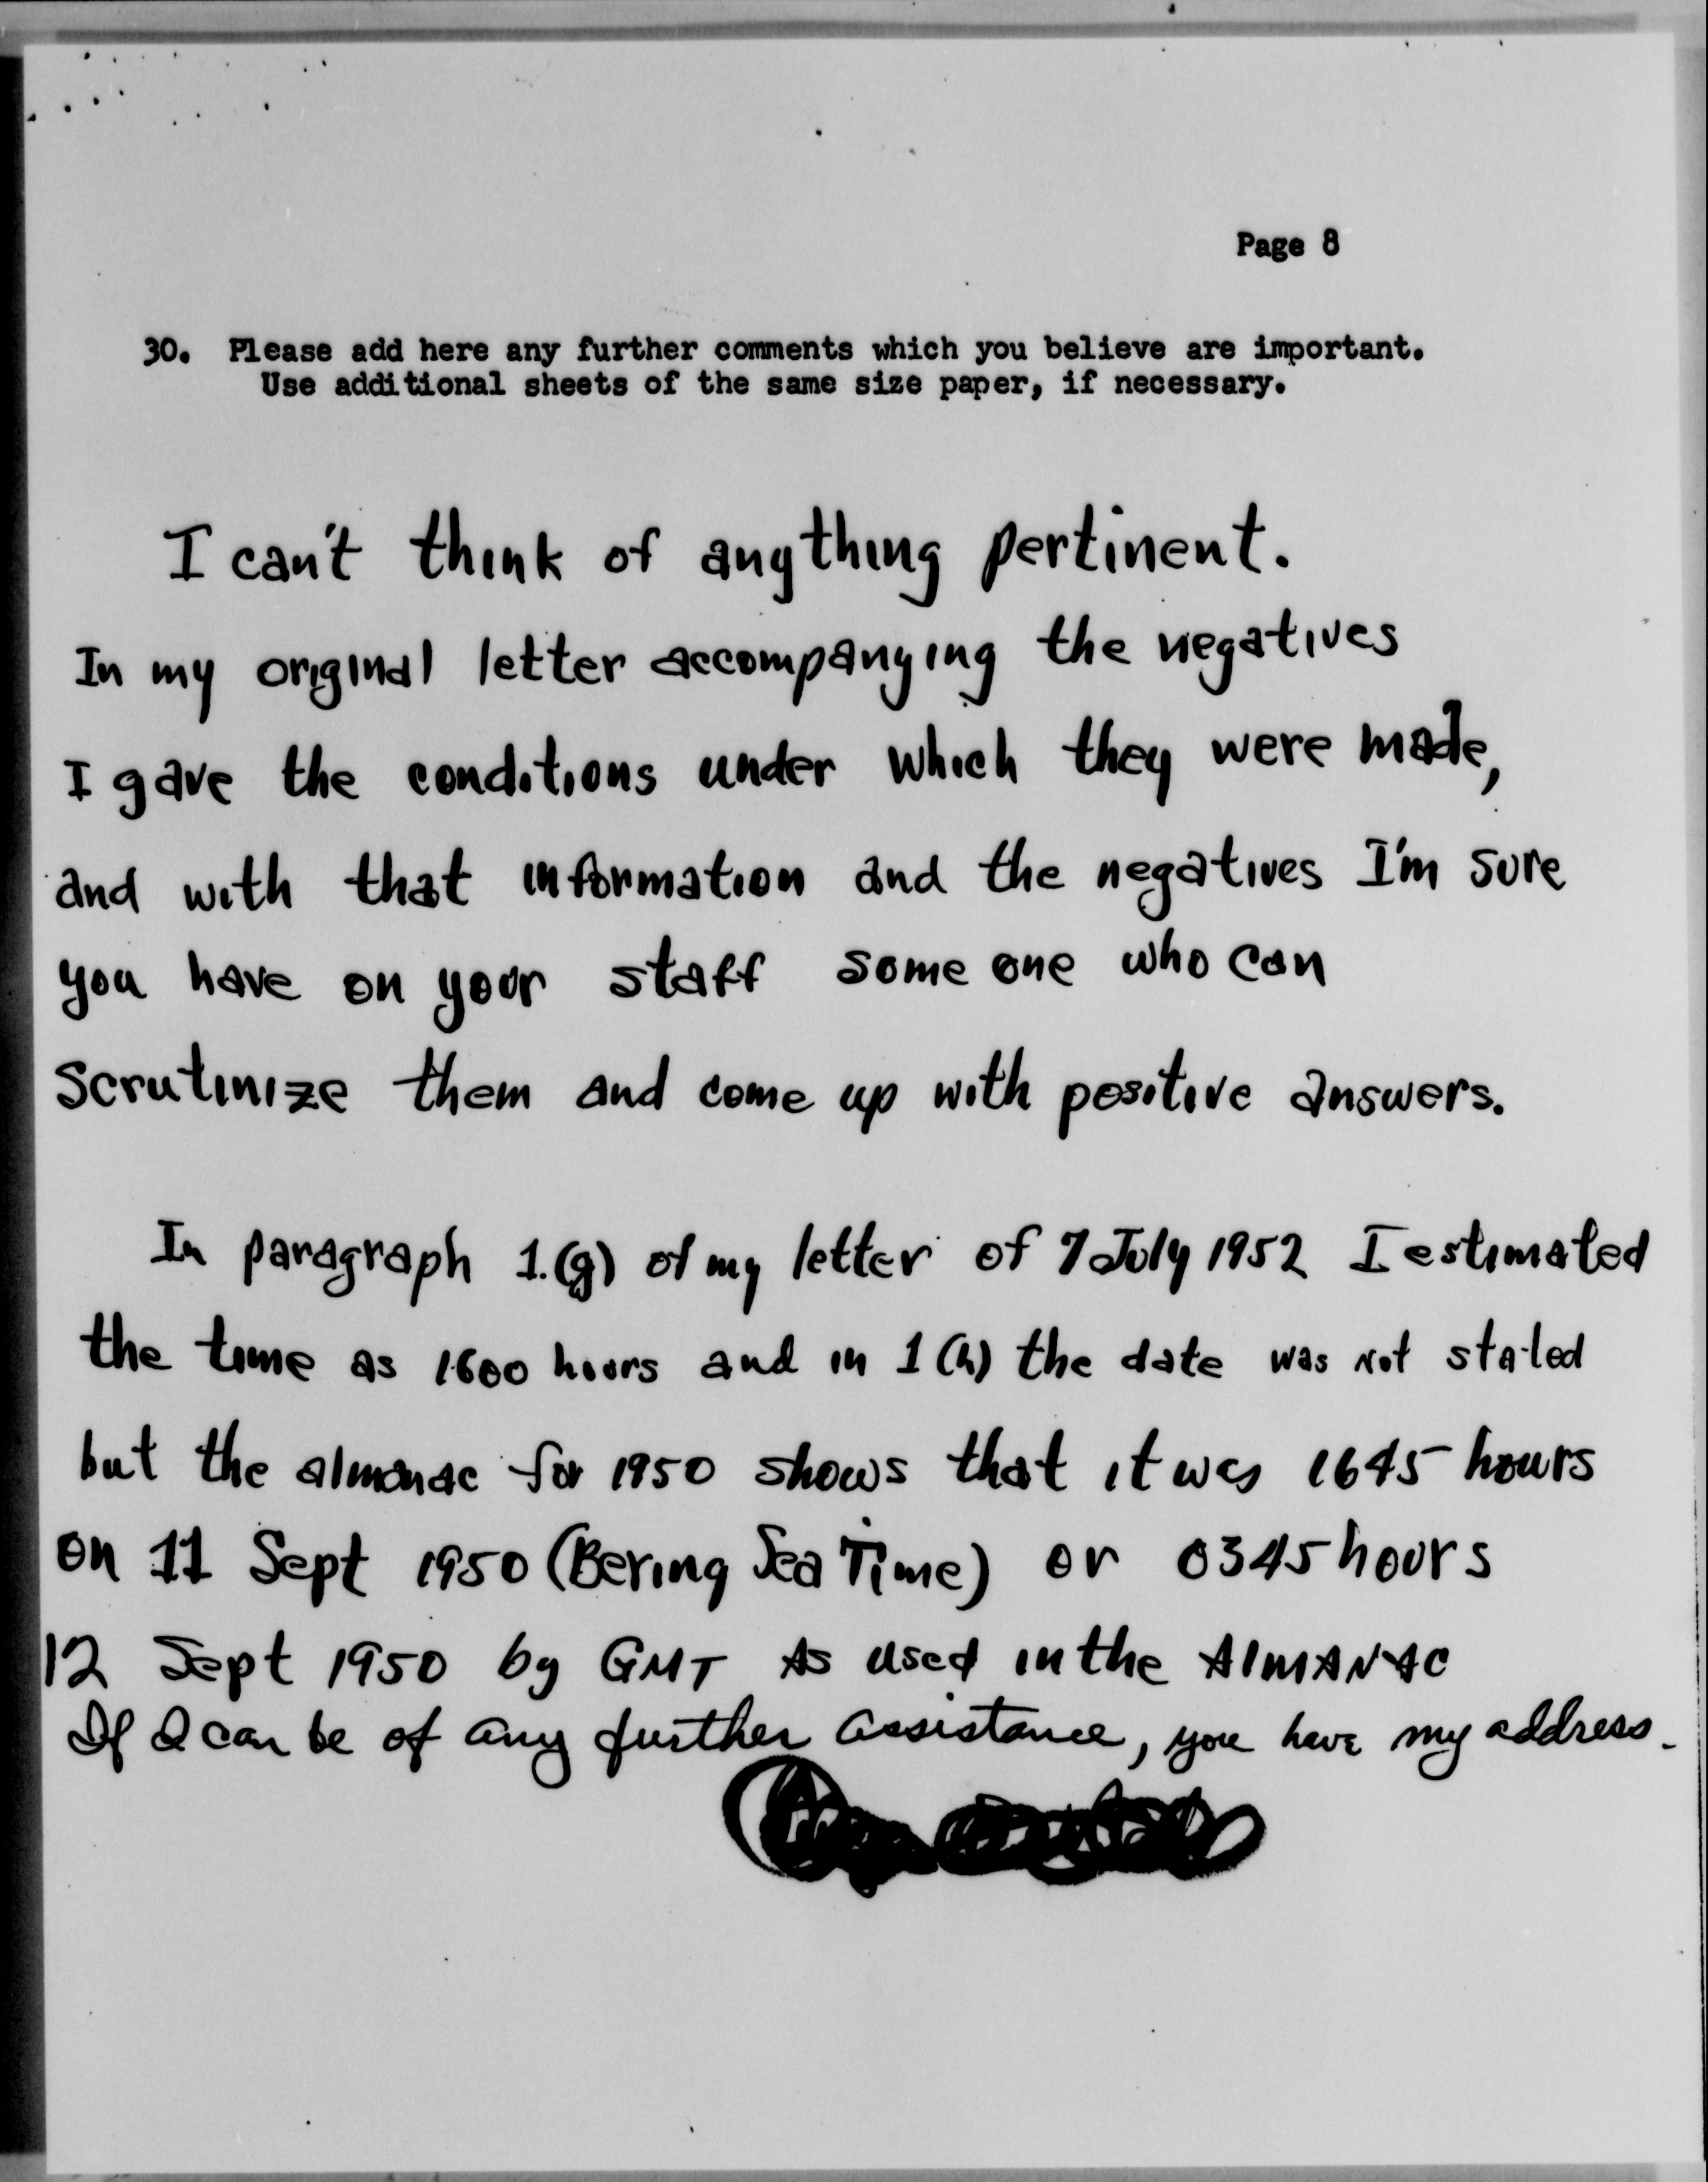 Page 8
30. Please add here any further comments which you believe are important.
Use additional sheets of the same size paper, if necessary.
I can't think of anything pertinent.
In my original letter accompanying the negatives
I gave the conditions under which they were made,
and with that information and the negatives I'm sure
you have on your staff some one who can
scrutinize them and come up with positive answers.
In paragraph 1.(g) of my letter of 7 July 1952 I estimated
the time as 1600 hours and in 1(h) the date was not stated
but the almanac for 1950 shows that it was 1645 hours
on 11 Sept 1950 (Bering Sea Time) or 0345 hours
12 Sept 1950 by GMT As used in the AlMANAC
If I can be of any further assistance, you have my address.